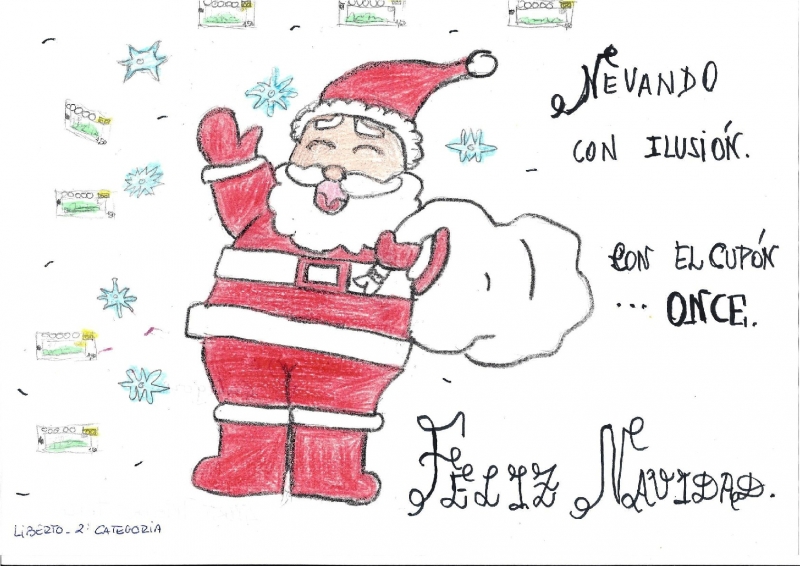 NEVANDO
CON ILUSIÓN.
CON EL CUPÓN
... ONCE.
FELIZ NAVIDAD.
LIBERTO - 2ª CATEGORIA